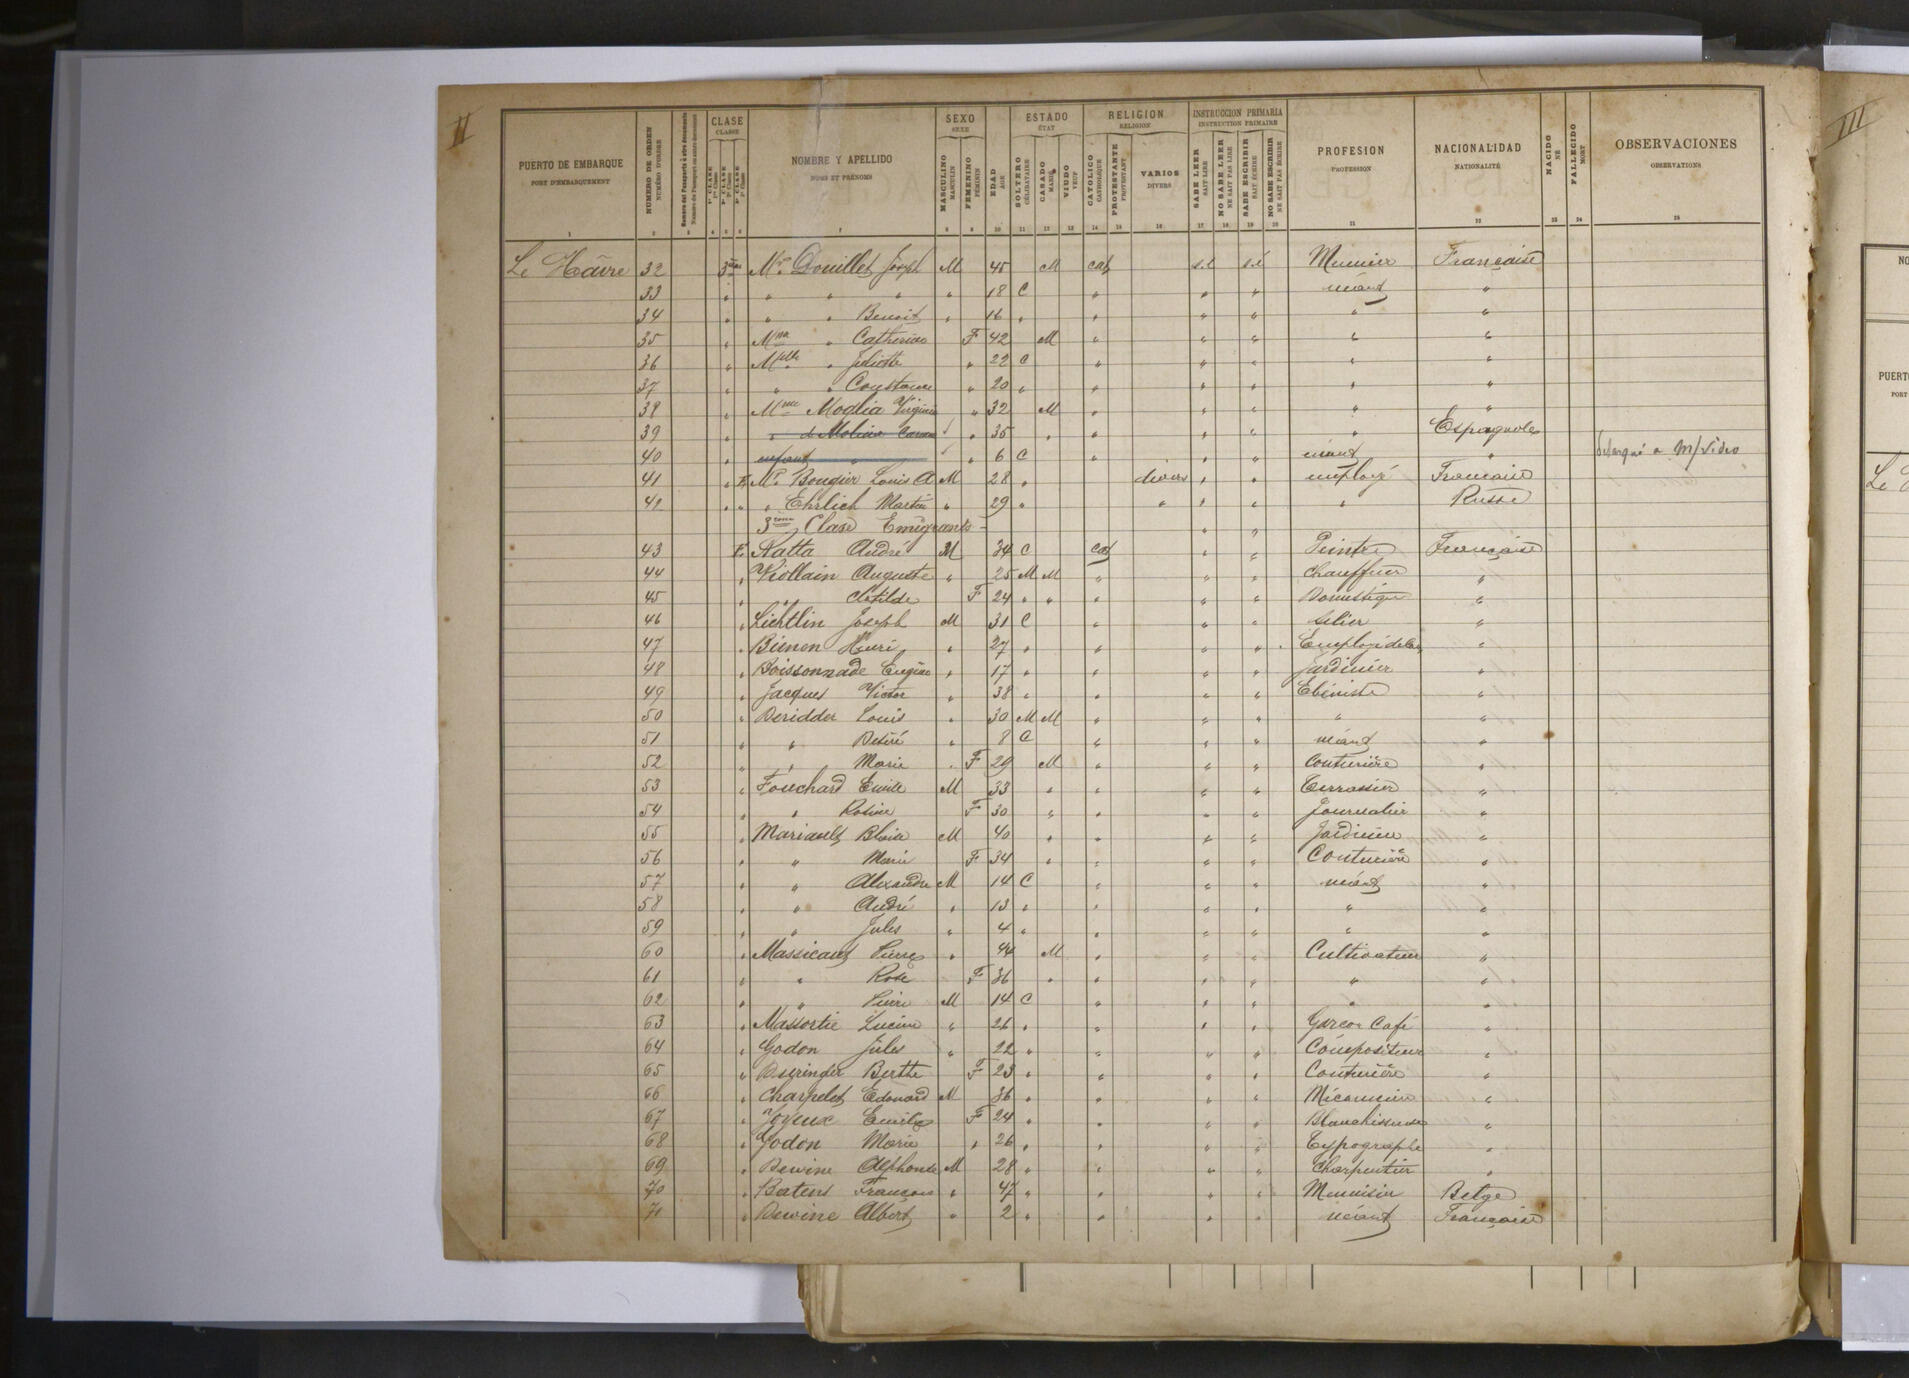 II
III
PUERTO DE EMBARQUE
PORT D'EMBARQUEMENT
NUMERO DE ORDEN
NUMÉRO D'ORDRE
CLASE
CLASSE
NOMBRE Y APELLIDO
NOMS ET PRÉNOMS
SEXO
SEXE
MASCULINO
MASCULIN
FEMENINO
FÉMININ
EDAD
AGE
ESTADO
ÉTAT
SOLTERO
CÉLIBATAIRE
CASADO
MARIÉ
VIUDO
VEUF
RELIGION
RELIGION
CATOLICO
CATHOLIQUE
PROTESTANTE
PROTESTANT
VARIOS
DIVERS
INSTRUCCION PRIMARIA
INSTRUCTION PRIMAIRE
SABE LEER
SAIT LIRE
NO SABE LEER
NE SAIT PAS LIRE
SABE ESCRIBIR
SAIT ÉCRIRE
NO SABE ESCRIBIR
NE SAIT PAS ÉCRIRE
PROFESION
PROFESSION
NACIONALIDAD
NATIONALITÉ
NACIDO
NÉ
FALLECIDO
MORT
OBSERVACIONES
OBSERVATIONS
Le Hâvre 32 3ème Mr Douillet Joseph M 45 M cat s.l s.é Meunier Française
33 " " " " 18 C " " " néant "
34 " " " Benoit " 16 " " " " " "
35 " Mme " Catherine F 42 M " " " " "
36 " Melle " Juliette " 22 C " " " " "
37 " " " Constance " 20 " " " " " "
38 " Mme Moglia Virginie " 32 M " " " " "
39 " " de Molina Carmen " 35 " " " " " Espagnole
40 " enfant " " 6 C " " " néant " M/video
41 " E. Mr Bougier Louis A M 28 " divers " " employé Française
41 " " " Ehrlich Martin " 29 " " " " " Russe
3ème Clase Emigrants " "
43 E. Natta André M 34 C cat " " Peintre Française
44 " Viollain Auguste " 25 M M " " " Chauffeur "
45 " " Clotilde F 24 " " " " " Domestique "
46 " Lichtlin Joseph M 31 C " " " Selier "
47 " Bienen Henri " 27 " " " "
48 " Boissonnade Eugène " 17 " " " " Jardinier "
49 " Jacques Victor " 38 " " " " Ebéniste "
50 " Deridder Louis " 30 M M " " " " "
51 " " Désiré " 8 C " " " néant "
52 " " Marie " F 29 M " " " Couturière "
53 " Fouchard Emile M 33 " " " " Terrassier "
54 " " Rosine F 30 " " " " Journalier "
55 " Mariault Blaise M 40 " " " " Jardinier "
56 " " Marie F 34 " " " " Couturière "
57 " " Alexandre M 14 C " " " néant "
58 " " André " 13 " " " " " "
59 " " Jules " 4 " " " " " "
60 " Massicaut Pierre " 44 M " " " Cultivateur "
61 " " Rose F 36 " " " " " "
62 " " Pierre M 14 C " " " " "
63 " Massortie Lucien " 26 " " " " Garcon Café "
64 " Godon Jules " 22 " " " " Compositeur "
65 " Berthe F 23 " " " " Couturière "
66 " Charpelet Edouard M 36 " " " " Mécanicien "
67 " Joyeux Emilie F 24 " " " " Blanchisseuse "
68 " Godon Marie " 26 " " " " Typographe "
69 " Dewine Alphonse M 28 " " " " Charpentier "
70 " Batens François " 47 " " " " Menuisier Belge
71 " Dewine Albert " 2 " " " " néant Française